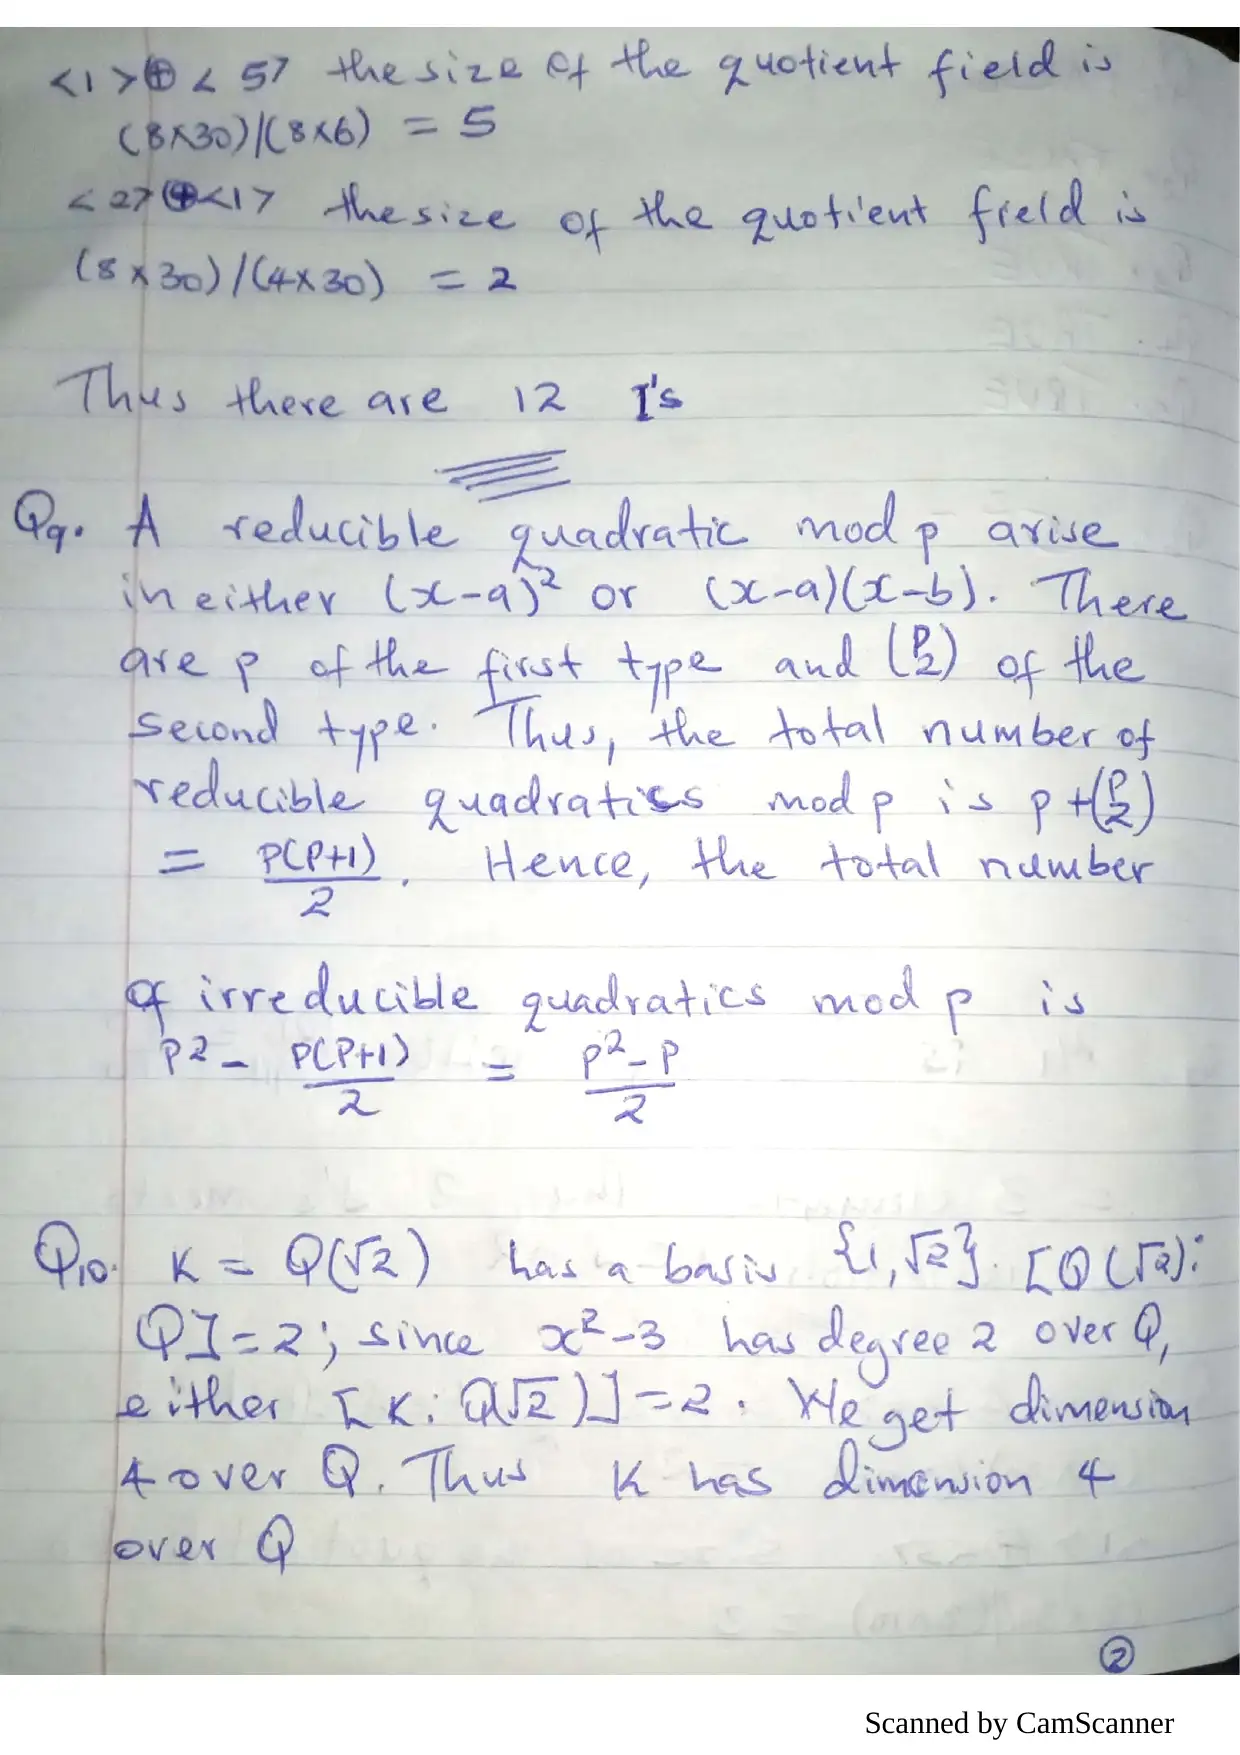 <1>⊕<5> the size of the quotient field is
(8×30)/(8×6) = 5
<2>⊕<1> the size of the quotient field is
(8×30)/(4×30) = 2
Thus there are 12 I's
Q9. A reducible quadratic mod p arise
in either (x-a)² or (x-a)(x-b). There
are p of the first type and (p 2) of the
second type. Thus, the total number of
reducible quadratics mod p is p+(p 2)
= p(p+1)/2. Hence, the total number
of irreducible quadratics mod p is
p² - p(p+1)/2 = p²-p/2
Q10. K = Q(√2) has a basis {1,√2}. [Q(√2):
Q]=2; since x²-3 has degree 2 over Q,
either [K:Q(√2)]=2. We get dimension
4 over Q. Thus K has dimension 4
over Q
2
Scanned by CamScanner